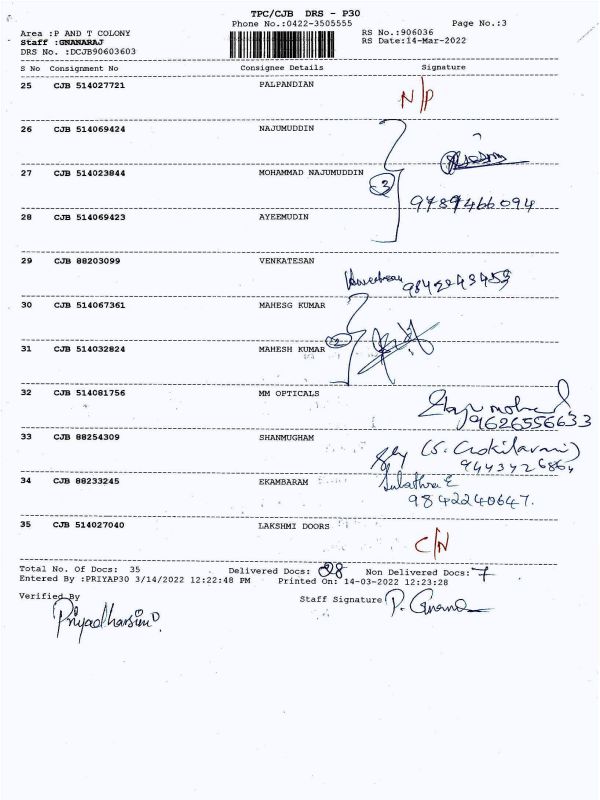 TPC/CJB DRS - P30
Phone No.:0422-3505555 Page No.:3
Area :P AND T COLONY RS No.:906036
Staff :GNANARAJ RS Date:14-Mar-2022
DRS No. :DCJB90603603
S No Consignment No Consignee Details Signature
25 CJB 514027721 PALPANDIAN
N/P
26 CJB 514069424 NAJUMUDDIN
27 CJB 514023844 MOHAMMAD NAJUMUDDIN
3
9789466094
28 CJB 514069423 AYEEMUDIN
29 CJB 88203099 VENKATESAN
9842243453
30 CJB 514067361 MAHESG KUMAR
2
31 CJB 514032824 MAHESH KUMAR
32 CJB 514081756 MM OPTICALS
9626556633
33 CJB 88254309 SHANMUGHAM
(S. Cokilavani)
34 CJB 88233245 EKAMBARAM
9842240647.
35 CJB 514027040 LAKSHMI DOORS
C/N
Total No. Of Docs: 35 Delivered Docs: 28 Non Delivered Docs: 7
Entered By :PRIYAP30 3/14/2022 12:22:48 PM Printed On: 14-03-2022 12:23:28
Verified By Staff Signature P. Gnana
Priyadharsini P.